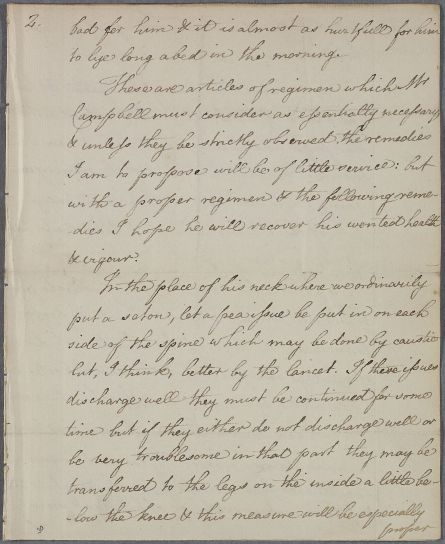 2.
bad for him & it is almost as hurtfull for him
to lye long abed in the morning.
These are articles of regimen which Mr
Campbell must consider as essentially necessary
& unless they be strictly observed the remedies
I am to propose will be of little service: but
with a proper regimen & the following reme-
dies I hope he will recover his wonted health
& vigour.
In the place of his neck where we ordinarily
put a seton, let a pea issue be put in on each
side of the spine which may be done by caustic
but, I think, better by the lancet. If these issues
discharge well they must be continued for some
time but if they either do not discharge well or
be very troublesome in that part they may be
transferred to the legs on the inside a little be-
-low the knee & this measure will be especially
proper